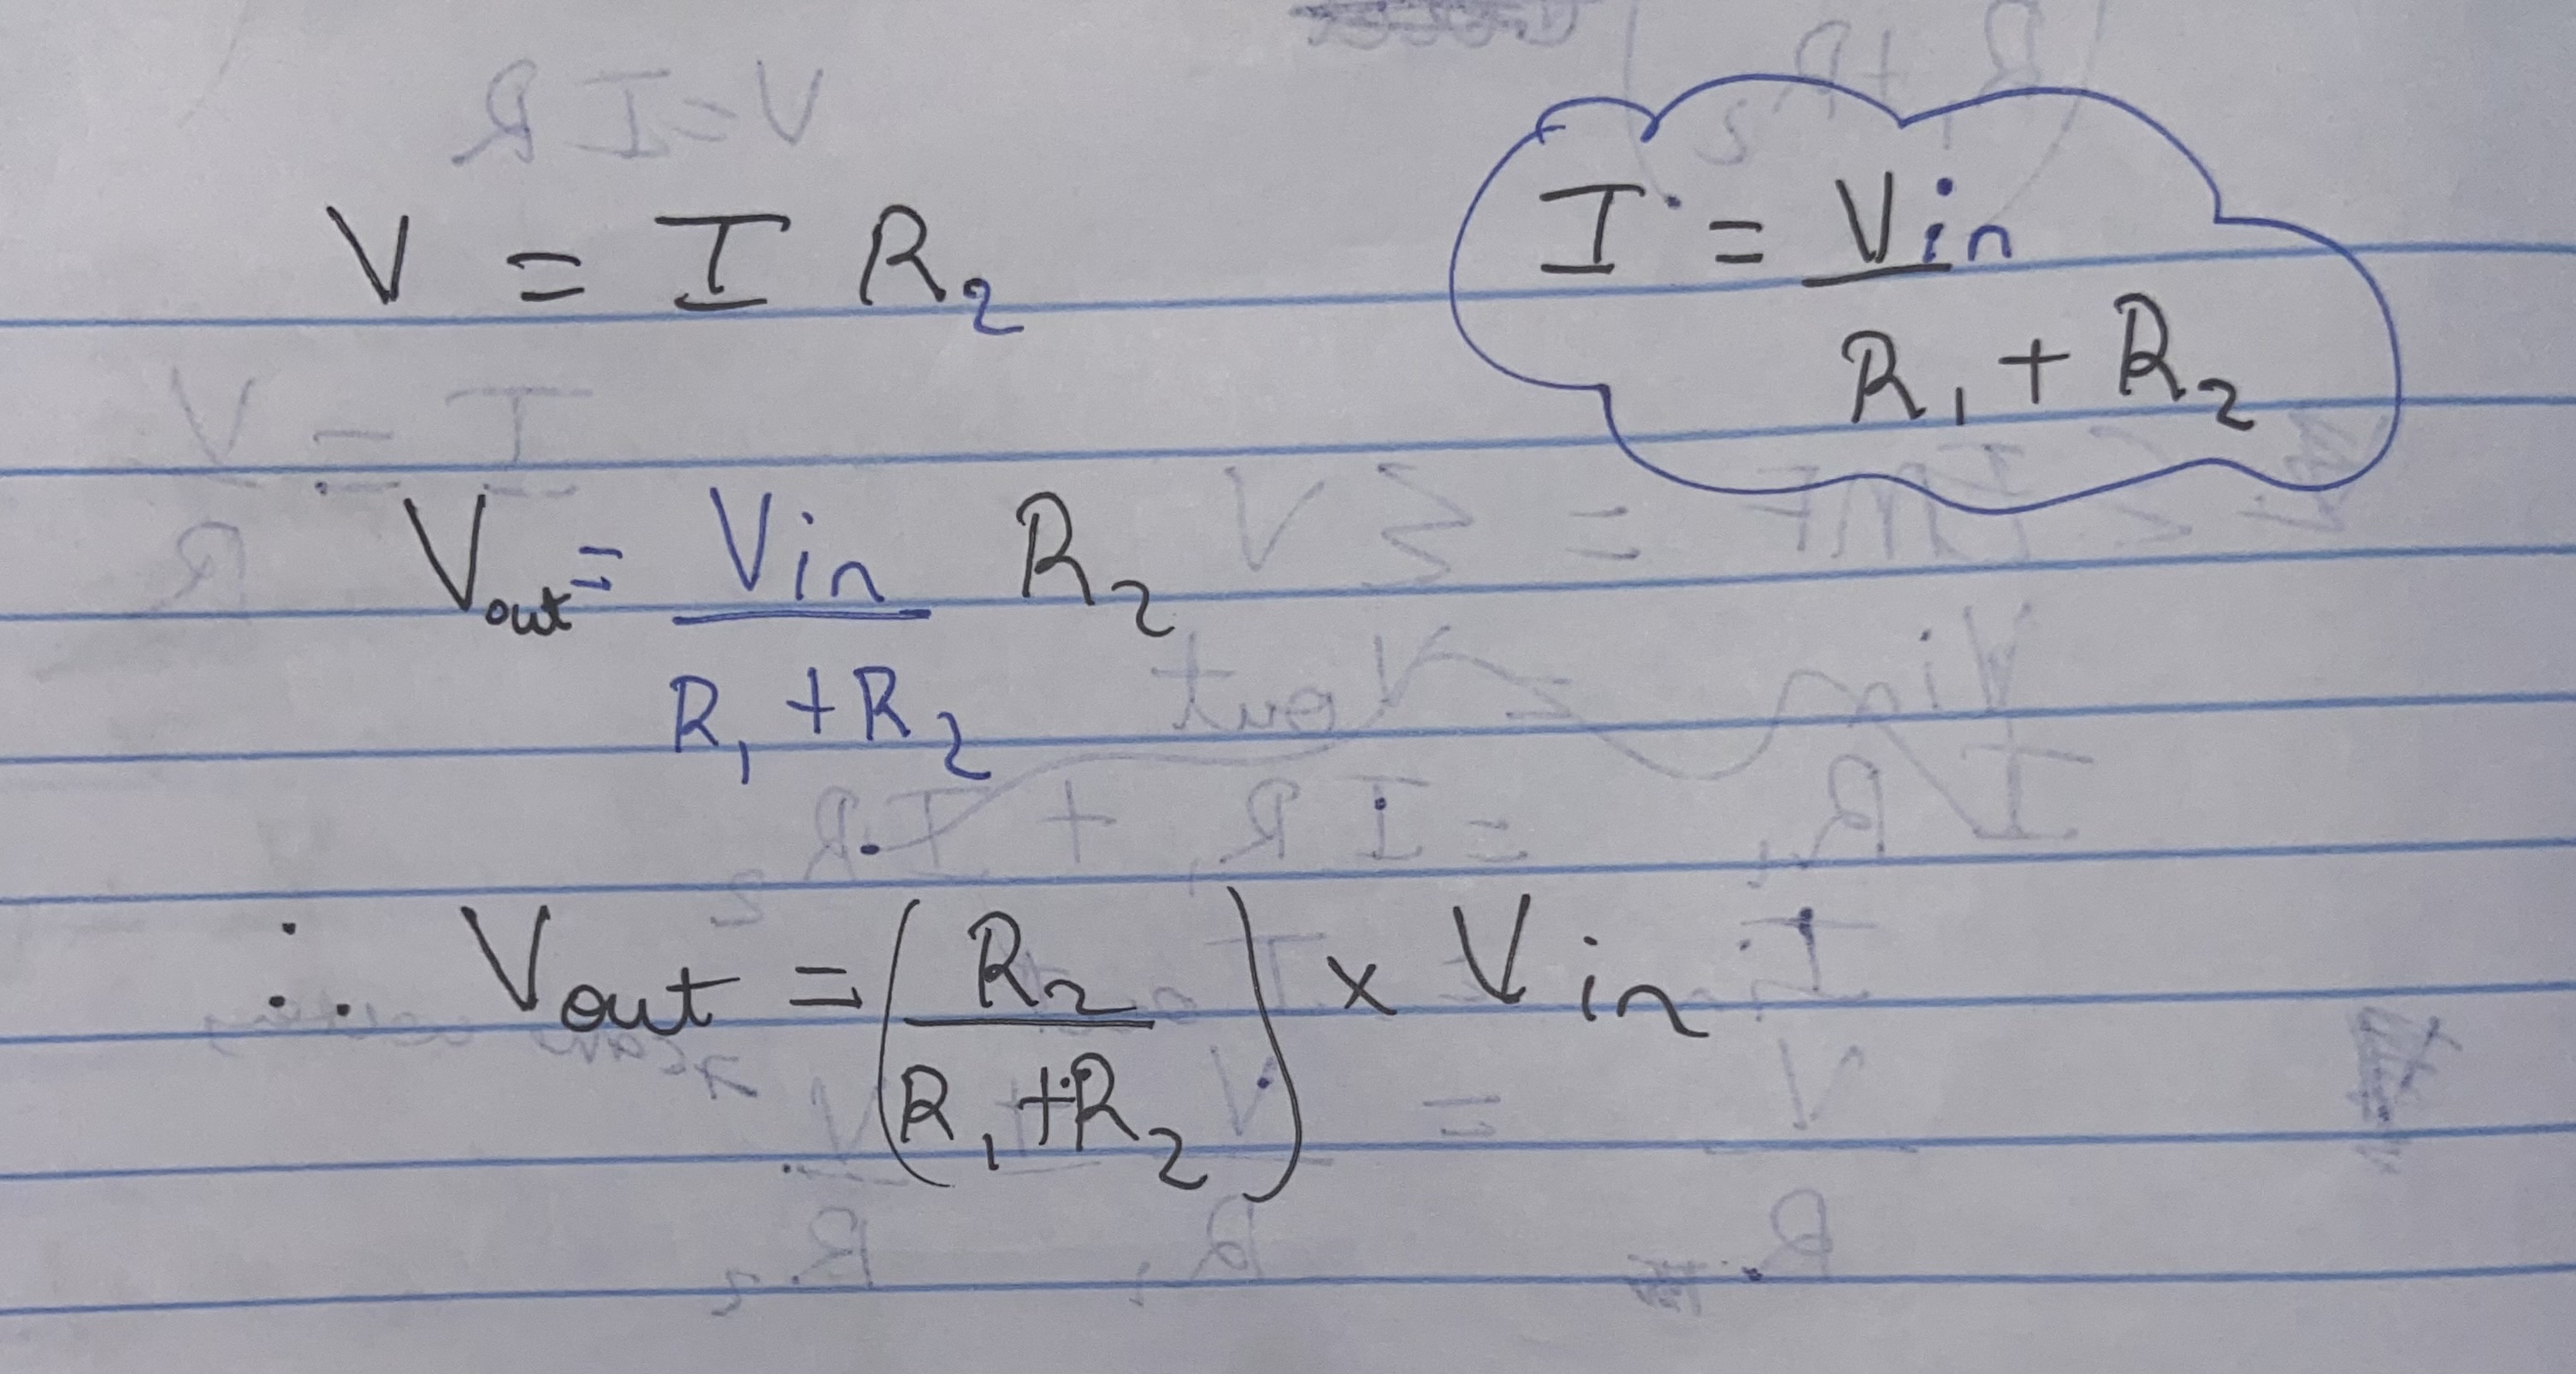 V = I R₂
I = Vin
R₁ + R₂
Vout = Vin R₂
R₁ + R₂
∴ Vout = (R₂ / R₁+R₂) × Vin